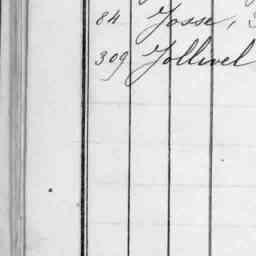 84 Josse,
309 Jollivel